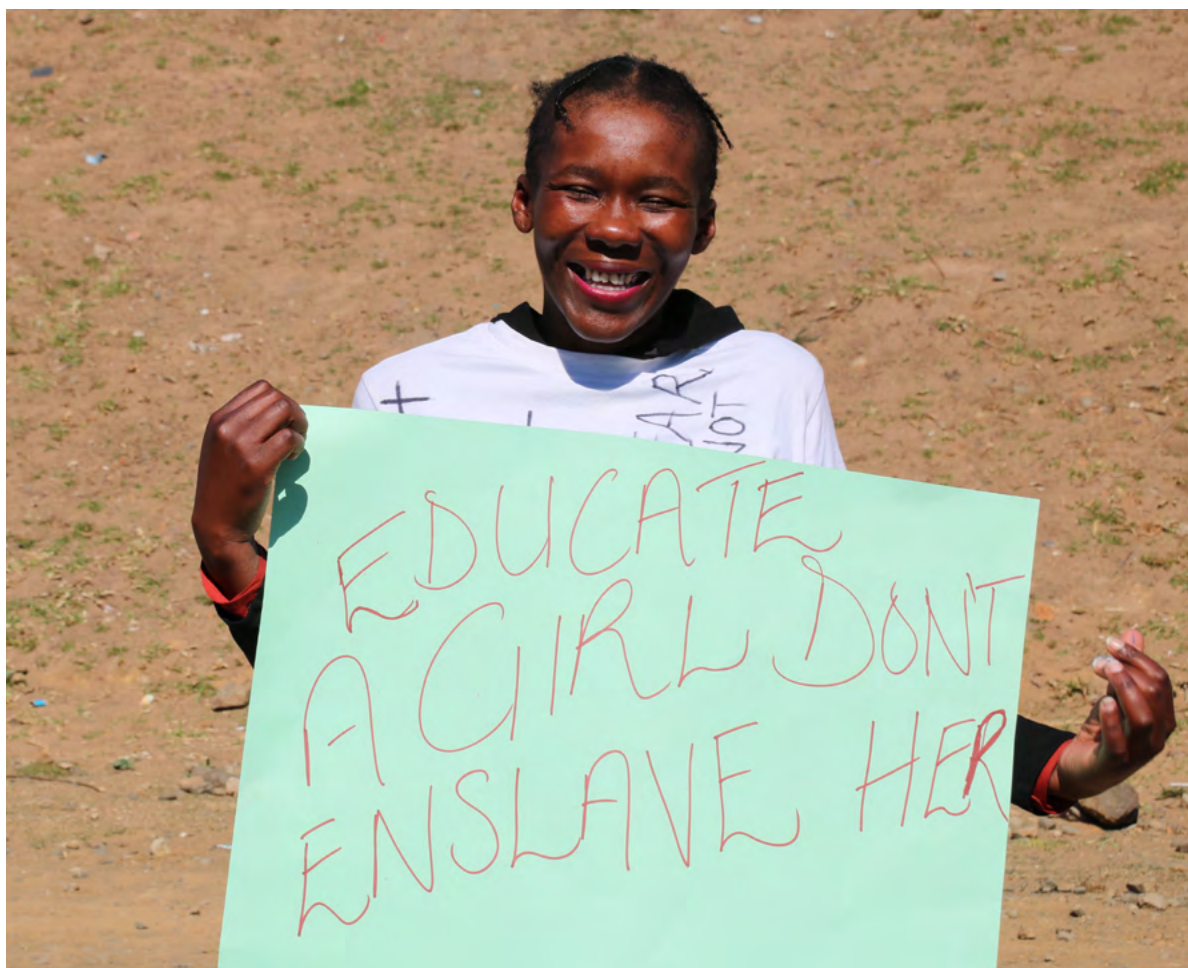 EDUCATE
A GIRL DONT
ENSLAVE HER
NOT